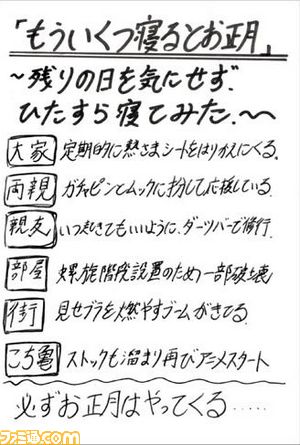 「もういくつ寝るとお正月」
〜残りの日を気にせず、
ひたすら寝てみた.〜
大家 定期的に熱さまシートをはりかえにくる。
両親 ガチャピンとムックに扮して応援している.
親友 いつ起きてもいいように、ダーツバーで修行.
部屋 螺旋階段設置のため一部破壊
街行 見せブラを燃やすブームがきてる.
こち亀 ストックも溜まり再びアニメスタート
必ずお正月はやってくる・・・・・
ファミ通.com